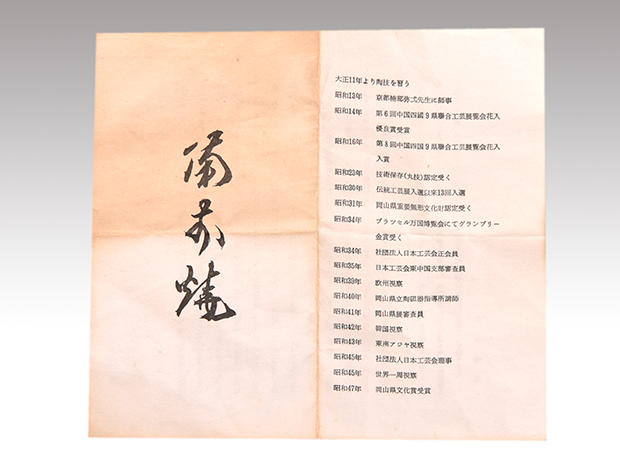 備前焼
大正11年より陶技を習う
昭和13年 京都楠部弥弌先生に師事
昭和14年 第6回中国四國9県聯合工芸展覧会花入
優良賞受賞
昭和16年 第8回中国四国9県聯合工芸展覧会花入
入賞
昭和23年 技術保存(丸技)認定受く
昭和30年 伝統工芸展入選以来13回入選
昭和31年 岡山県重要無形文化財認定受く
昭和34年 ブラッセル万国博覧会にてグランプリー
金賞受く
昭和34年 社団法人日本工芸会正会員
昭和35年 日本工芸会東中国支部審査員
昭和39年 欧州視察
昭和40年 岡山県立陶磁器指導所講師
昭和41年 岡山県展審査員
昭和42年 韓国視察
昭和43年 東南アジヤ視察
昭和45年 社団法人日本工芸会理事
昭和45年 世界一周視察
昭和47年 岡山県文化賞受賞